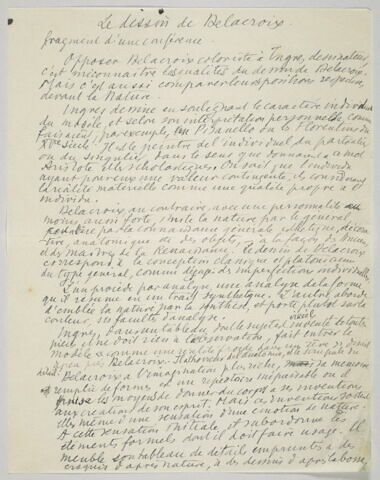 Le dessin de Delacroix.
fragment d'une conférence.
Opposer Delacroix coloriste à Ingres, dessinateur,
c'est méconnaître les qualités du dessin de Delacroix.
Mais c'est aussi comparer leurs positions respectives
devant la Nature.
Ingres dessine en soulignant le caractère individuel
du modèle et selon son interprétation personnelle, comme
faisaient, par exemple, un Pisanello ou les Florentins du
XVe siècle. Il est le peintre de l'individuel, du particulier
ou du singulier, dans le sens que donnaient à ce mot
Aristote et les scholastiques. On sait que l'individu
ayant pour eux une valeur contingente, ils considéraient
la réalité matérielle comme une qualité propre à l'
individu.
Delacroix au contraire, avec une personnalité au
moins aussi forte, imite la nature par le général,
par la connaissance générale, caractère,
anatomique des objets, à la façon
et des maîtres de la Renaissance. Le dessin de Delacroix
correspond à la conception classique et platonicienne
du type général, comme dégagé des imperfections individuelles.
L'un procède par analyse, une analyse de la forme
qu'il résume en un trait synthétique. L'autre aborde
d'emblée la nature par la synthèse, et porte plutôt sur la
couleur, sa faculté d'analyse.
Ingres, dans un tableau, dont le sujet
il ne doit rien à l'observation, fait entrer le
modèle comme
Delacroix
Delacroix a l'imagination plus riche, sa mémoire
est remplie de formes et un répertoire inépuisable où il
puise les moyens de donner du corps à ses inventions
aux créations de son esprit. Mais ces inventions sont
elles mêmes d'une sensation d'une émotion de nature
A cette sensation initiale, et subordonne les
éléments formels dont il doit faire usage. Il
meuble son tableau de détails empruntés à des
croquis d'après nature, à des dessins d'après